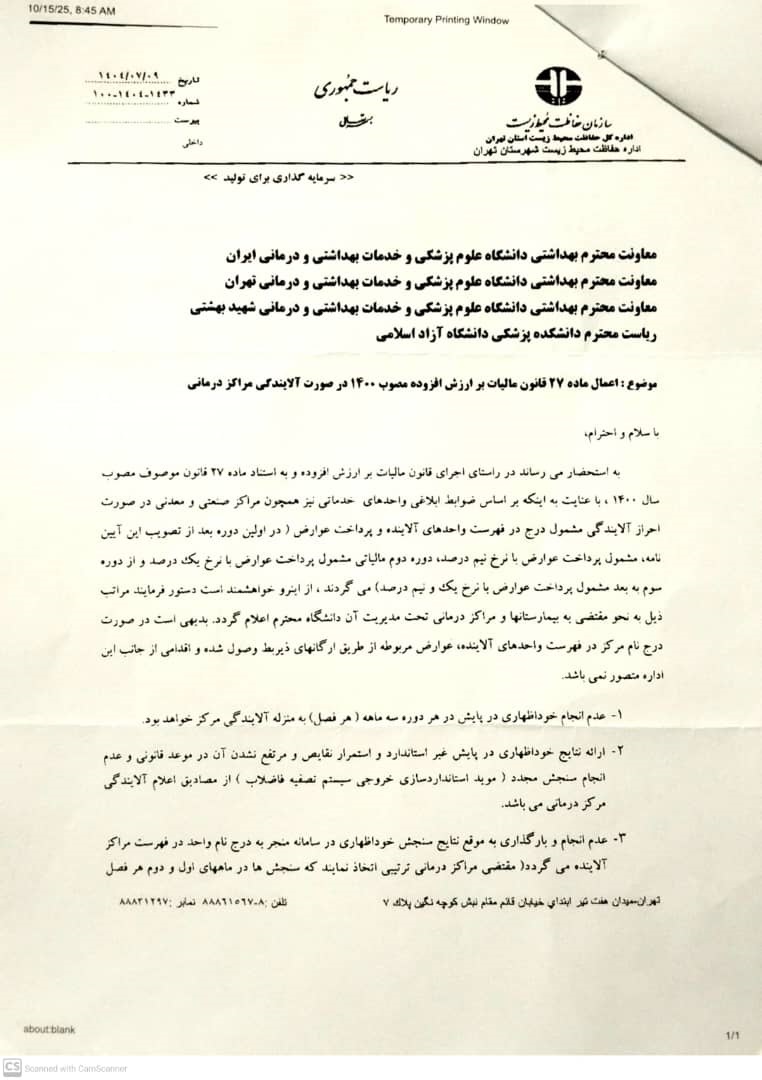 10/15/25, 8:45 AM
Temporary Printing Window
ریاست جمهوری
سازمان حفاظت محیط زیست
اداره کل حفاظت محیط زیست استان تهران
اداره حفاظت محیط زیست شهرستان تهران
تاریخ ۱۴۰۴/۰۷/۰۹
شماره ۱۰۰-۱۴۰۴-۱۴۳۳
پیوست
داخلی
<< سرمایه گذاری برای تولید >>
معاونت محترم بهداشتی دانشگاه علوم پزشکی و خدمات بهداشتی و درمانی ایران
معاونت محترم بهداشتی دانشگاه علوم پزشکی و خدمات بهداشتی و درمانی تهران
معاونت محترم بهداشتی دانشگاه علوم پزشکی و خدمات بهداشتی و درمانی شهید بهشتی
ریاست محترم دانشکده پزشکی دانشگاه آزاد اسلامی
موضوع : اعمال ماده ۲۷ قانون مالیات بر ارزش افزوده مصوب ۱۴۰۰ در صورت آلایندگی مراکز درمانی
با سلام و احترام،
به استحضار می رساند در راستای اجرای قانون مالیات بر ارزش افزوده و به استناد ماده ۲۷ قانون موصوف مصوب
سال ۱۴۰۰ ، با عنایت به اینکه بر اساس ضوابط ابلاغی واحدهای خدماتی نیز همچون مراکز صنعتی و معدنی در صورت
احراز آلایندگی مشمول درج در فهرست واحدهای آلاینده و پرداخت عوارض ( در اولین دوره بعد از تصویب این آیین
نامه، مشمول پرداخت عوارض با نرخ نیم درصد، دوره دوم مالیاتی مشمول پرداخت عوارض با نرخ یک درصد و از دوره
سوم به بعد مشمول پرداخت عوارض با نرخ یک و نیم درصد) می گردند ، از اینرو خواهشمند است دستور فرمایند مراتب
ذیل به نحو مقتضی به بیمارستانها و مراکز درمانی تحت مدیریت آن دانشگاه محترم اعلام گردد. بدیهی است در صورت
درج نام مرکز در فهرست واحدهای آلاینده، عوارض مربوطه از طریق ارگانهای ذیربط وصول شده و اقدامی از جانب این
اداره متصور نمی باشد.
۱- عدم انجام خوداظهاری در پایش در هر دوره سه ماهه ( هر فصل) به منزله آلایندگی مرکز خواهد بود.
۲- ارائه نتایج خوداظهاری در پایش غیر استاندارد و استمرار نقایص و مرتفع نشدن آن در موعد قانونی و عدم
انجام سنجش مجدد ( موید استانداردسازی خروجی سیستم تصفیه فاضلاب ) از مصادیق اعلام آلایندگی
مرکز درمانی می باشد.
۳- عدم انجام و بارگذاری به موقع نتایج سنجش خوداظهاری در سامانه منجر به درج نام واحد در فهرست مراکز
آلاینده می گردد( مقتضی مراکز درمانی ترتیبی اتخاذ نمایند که سنجش ها در ماههای اول و دوم هر فصل
تهران-میدان هفت تیر ابتدای خیابان قائم مقام نبش کوچه نگین پلاک ۷ تلفن :۸-۸۸۸۶۱۵۶۷ نمابر :۸۸۸۳۱۲۹۷
about:blank
1/1
CS Scanned with CamScanner